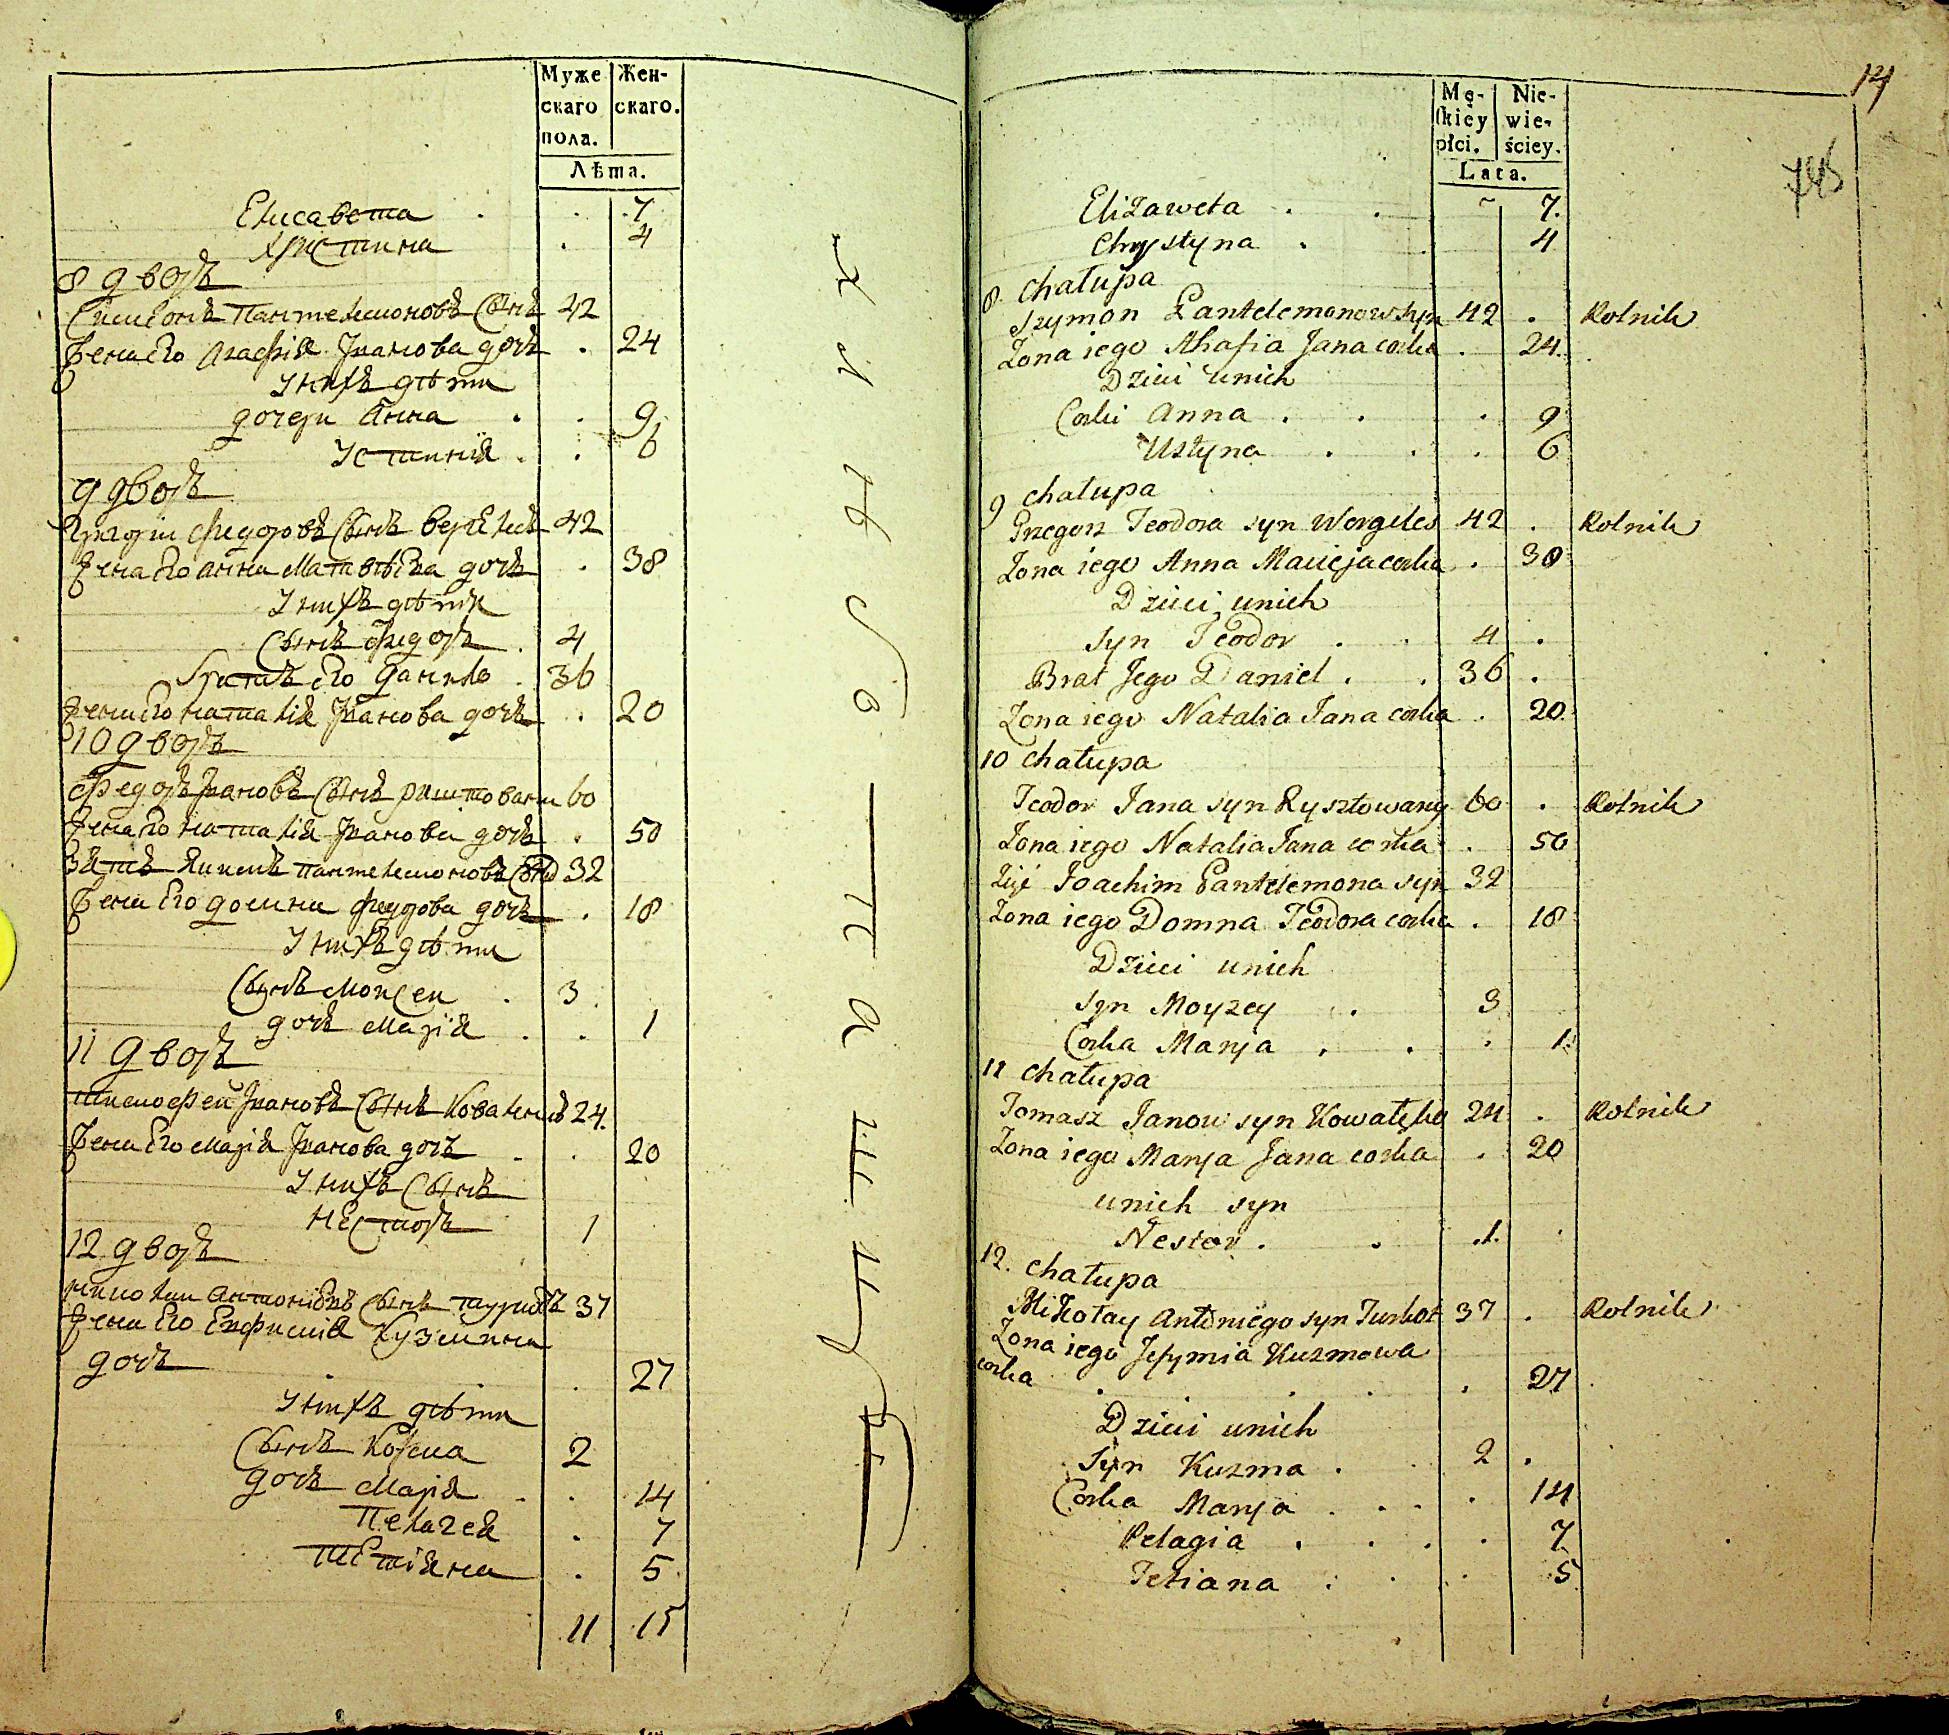 Муже
скаго
пола.
Жен-
скаго.
Лѣта.
Елисавета . . 7
Христина . 4
8 дворъ
Симеонъ Пантелимоновъ сынъ 42
Жена его Агафія Іванова дочь . 24
У нихъ дѣти
дочери Анна . . 9
Устинія . . 6
9 дворъ
Григорій Федоровъ сынъ Вергелесъ 42
Жена его Анна Матвѣева дочь . 38
У нихъ дѣти
сынъ Федоръ . 4
Братъ его Данило . 36
Жена его Наталія Іванова дочь . 20
10 дворъ
Федоръ Івановъ сынъ Риштовани 60
Жена его Наталія Іванова дочь . 50
Зять Якимъ Пантелимоновъ сынъ 32
Жена его Домна Федорова дочь . 18
У нихъ дѣти
сынъ Моисей . 3
дочь Марія . . 1
11 дворъ
Тимофей Івановъ сынъ 24.
Жена его Марія Іванова дочь . . 20
У нихъ сынъ
Несторъ 1
12 дворъ
Николай Антоніевъ сынъ 37
Жена его Евфимія Кузмина
дочь . . . 27
У нихъ дѣти
сынъ Косма 2
дочь Марія . . 14
Пелагея . 7
Тетіяна . 5
11 15
14
745
Mę-
skiey
płci.
Nie-
wie-
ściey.
Lata.
Elizaweta . . 7.
Chrystyna . . 4
8. Chałupa
Szymon Pantelemonow syn 42 . Rolnik
Zona iego Ahafia Jana corka . 24.
Dzieci unich
Corki Anna . . . 9
Ustyna . . . 6
9 Chałupa
Grzegorz Teodora syn Wergeles 42 . Rolnik
Zona iego Anna Macieja corka . 38
Dzieci unich
Syn Teodor . . 4 .
Brat Jego Daniel . . 36 .
Zona iego Natalia Jana corka . 20.
10 Chałupa
Teodor Jana syn Rysztowany 60 . Rolnik
Zona iego Natalia Jana corka . 50
Zięć Joachim Pantelemona syn 32
Zona iego Domna Teodora corka . 18
Dzieci unich
Syn Moyzey . 3
Corka Marya . . . 1.
11 Chałupa
Tomasz Janow syn Kowałęko 24 . Rolnik
Zona iego Marya Jana corka . 20
unich syn
Nestor . . .1. .
12. Chałupa
Mikołay Antoniego syn Turkot 37 . Rolnik
Zona iego Jefymia Kuzmowa
corka . . . . 27
Dzieci unich
Syn Kuzma . . 2 .
Corka Marya . . . . 14
Pelagia . . . . 7
Tetiana . . . 5